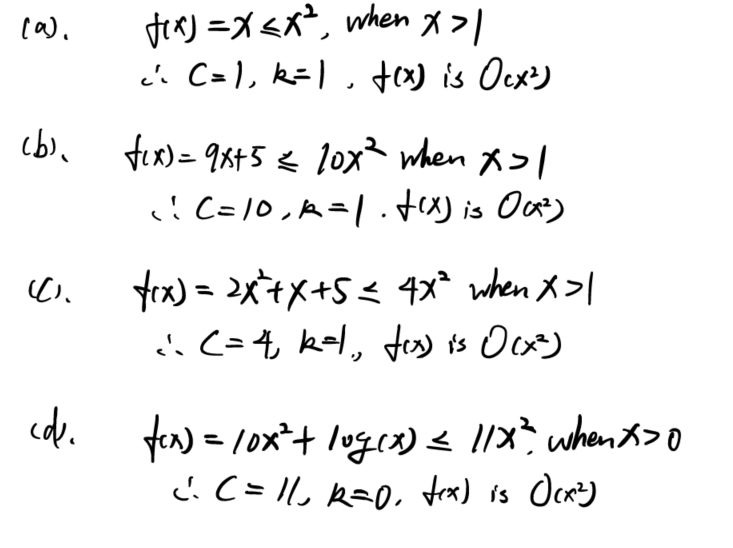 (a). f(x) = x ≤ x², when x > 1
∴ C = 1, k = 1, f(x) is O(x²)
(b). f(x) = 9x+5 ≤ 10x² when x > 1
∴ C = 10, k = 1. f(x) is O(x²)
(c). f(x) = 2x²+x+5 ≤ 4x² when x > 1
∴ C = 4, k = 1, f(x) is O(x²)
(d). f(x) = 10x² + log(x) ≤ 11x², when x > 0
∴ C = 11, k = 0. f(x) is O(x²)